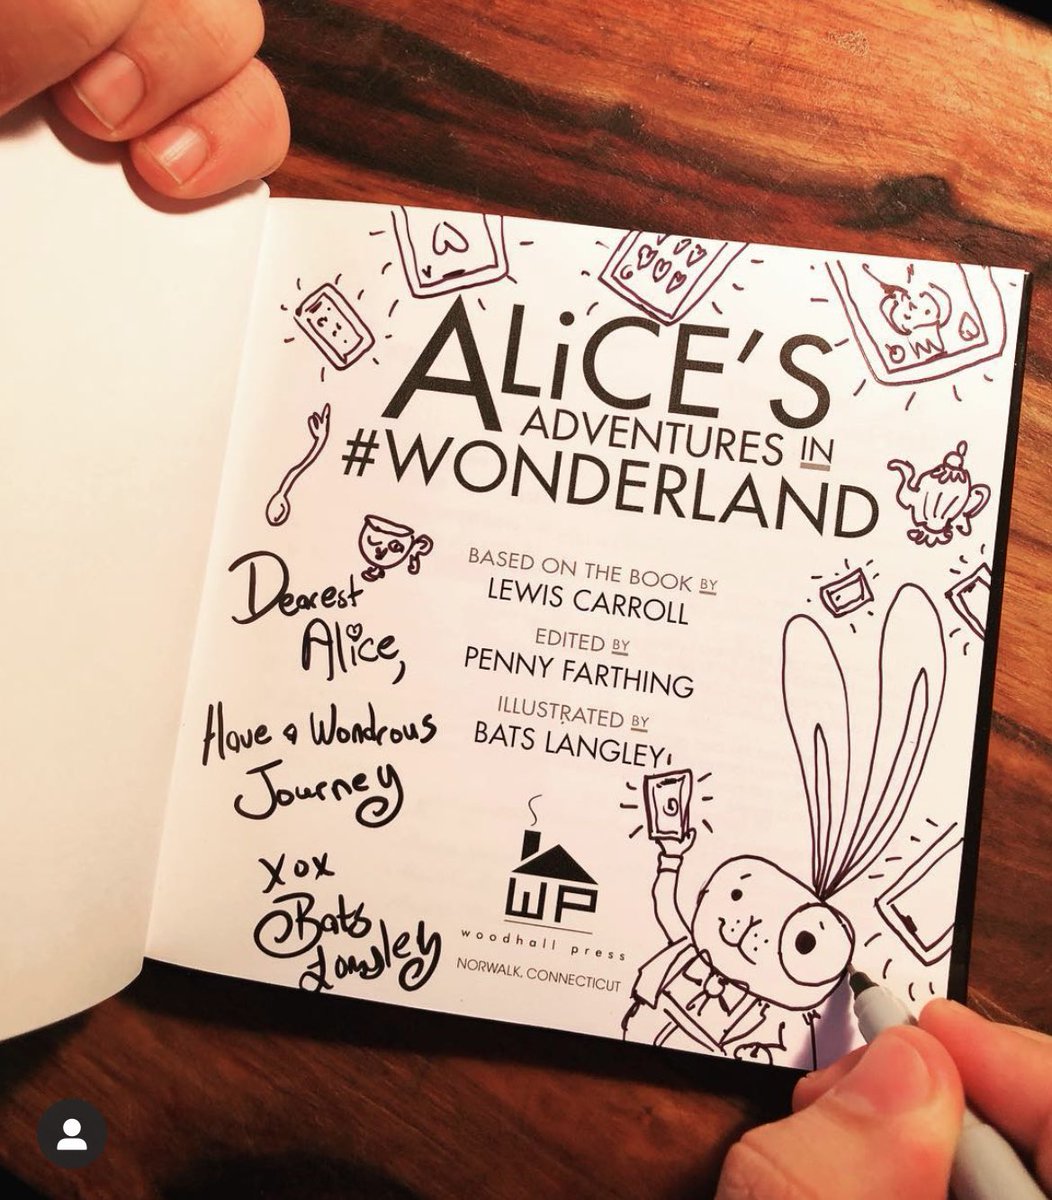 ALiCE'S
ADVENTURES IN
#WONDERLAND
BASED ON THE BOOK BY
LEWIS CARROLL
EDITED BY
PENNY FARTHING
ILLUSTRATED BY
BATS LANGLEY
WP
woodhall press
NORWALK, CONNECTICUT
Dearest
Alice,
Have a Wondrous
Journey
xox
Bats
Langley